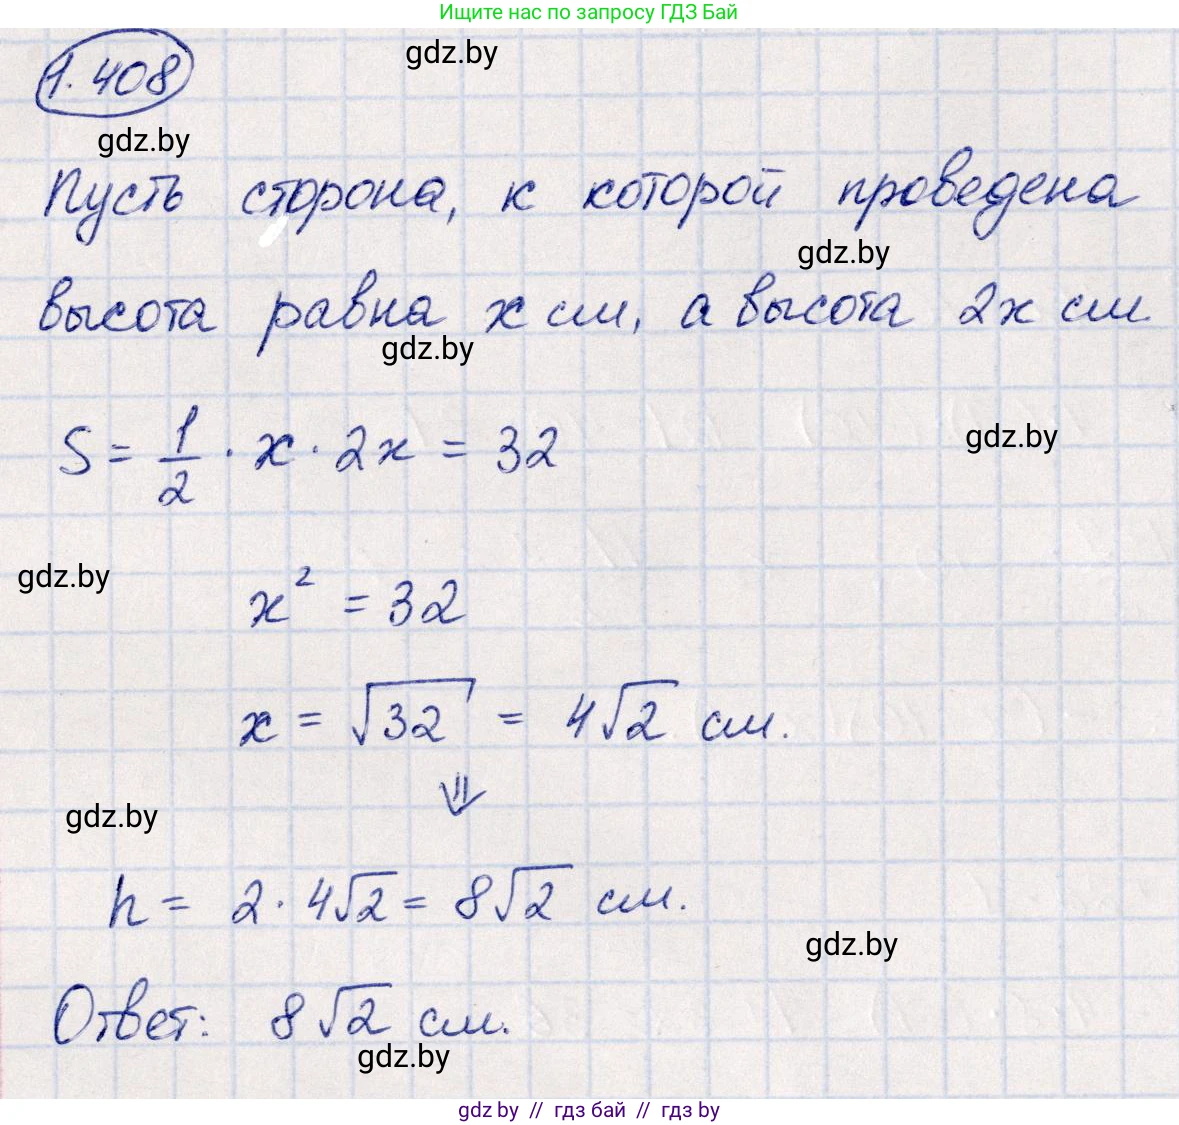 Ищите нас по запросу ГДЗ Бай
1.408
gdz.by
gdz.by
Пусть сторона, к которой проведена
gdz.by
высота равна x см, а высота 2x см.
gdz.by
S = 1/2 · x · 2x = 32
gdz.by
gdz.by
x² = 32
x = √32 = 4√2 см.
⇓
gdz.by
h = 2 · 4√2 = 8√2 см.
gdz.by
Ответ: 8√2 см.
gdz.by
gdz by // гдз бай // гдз by